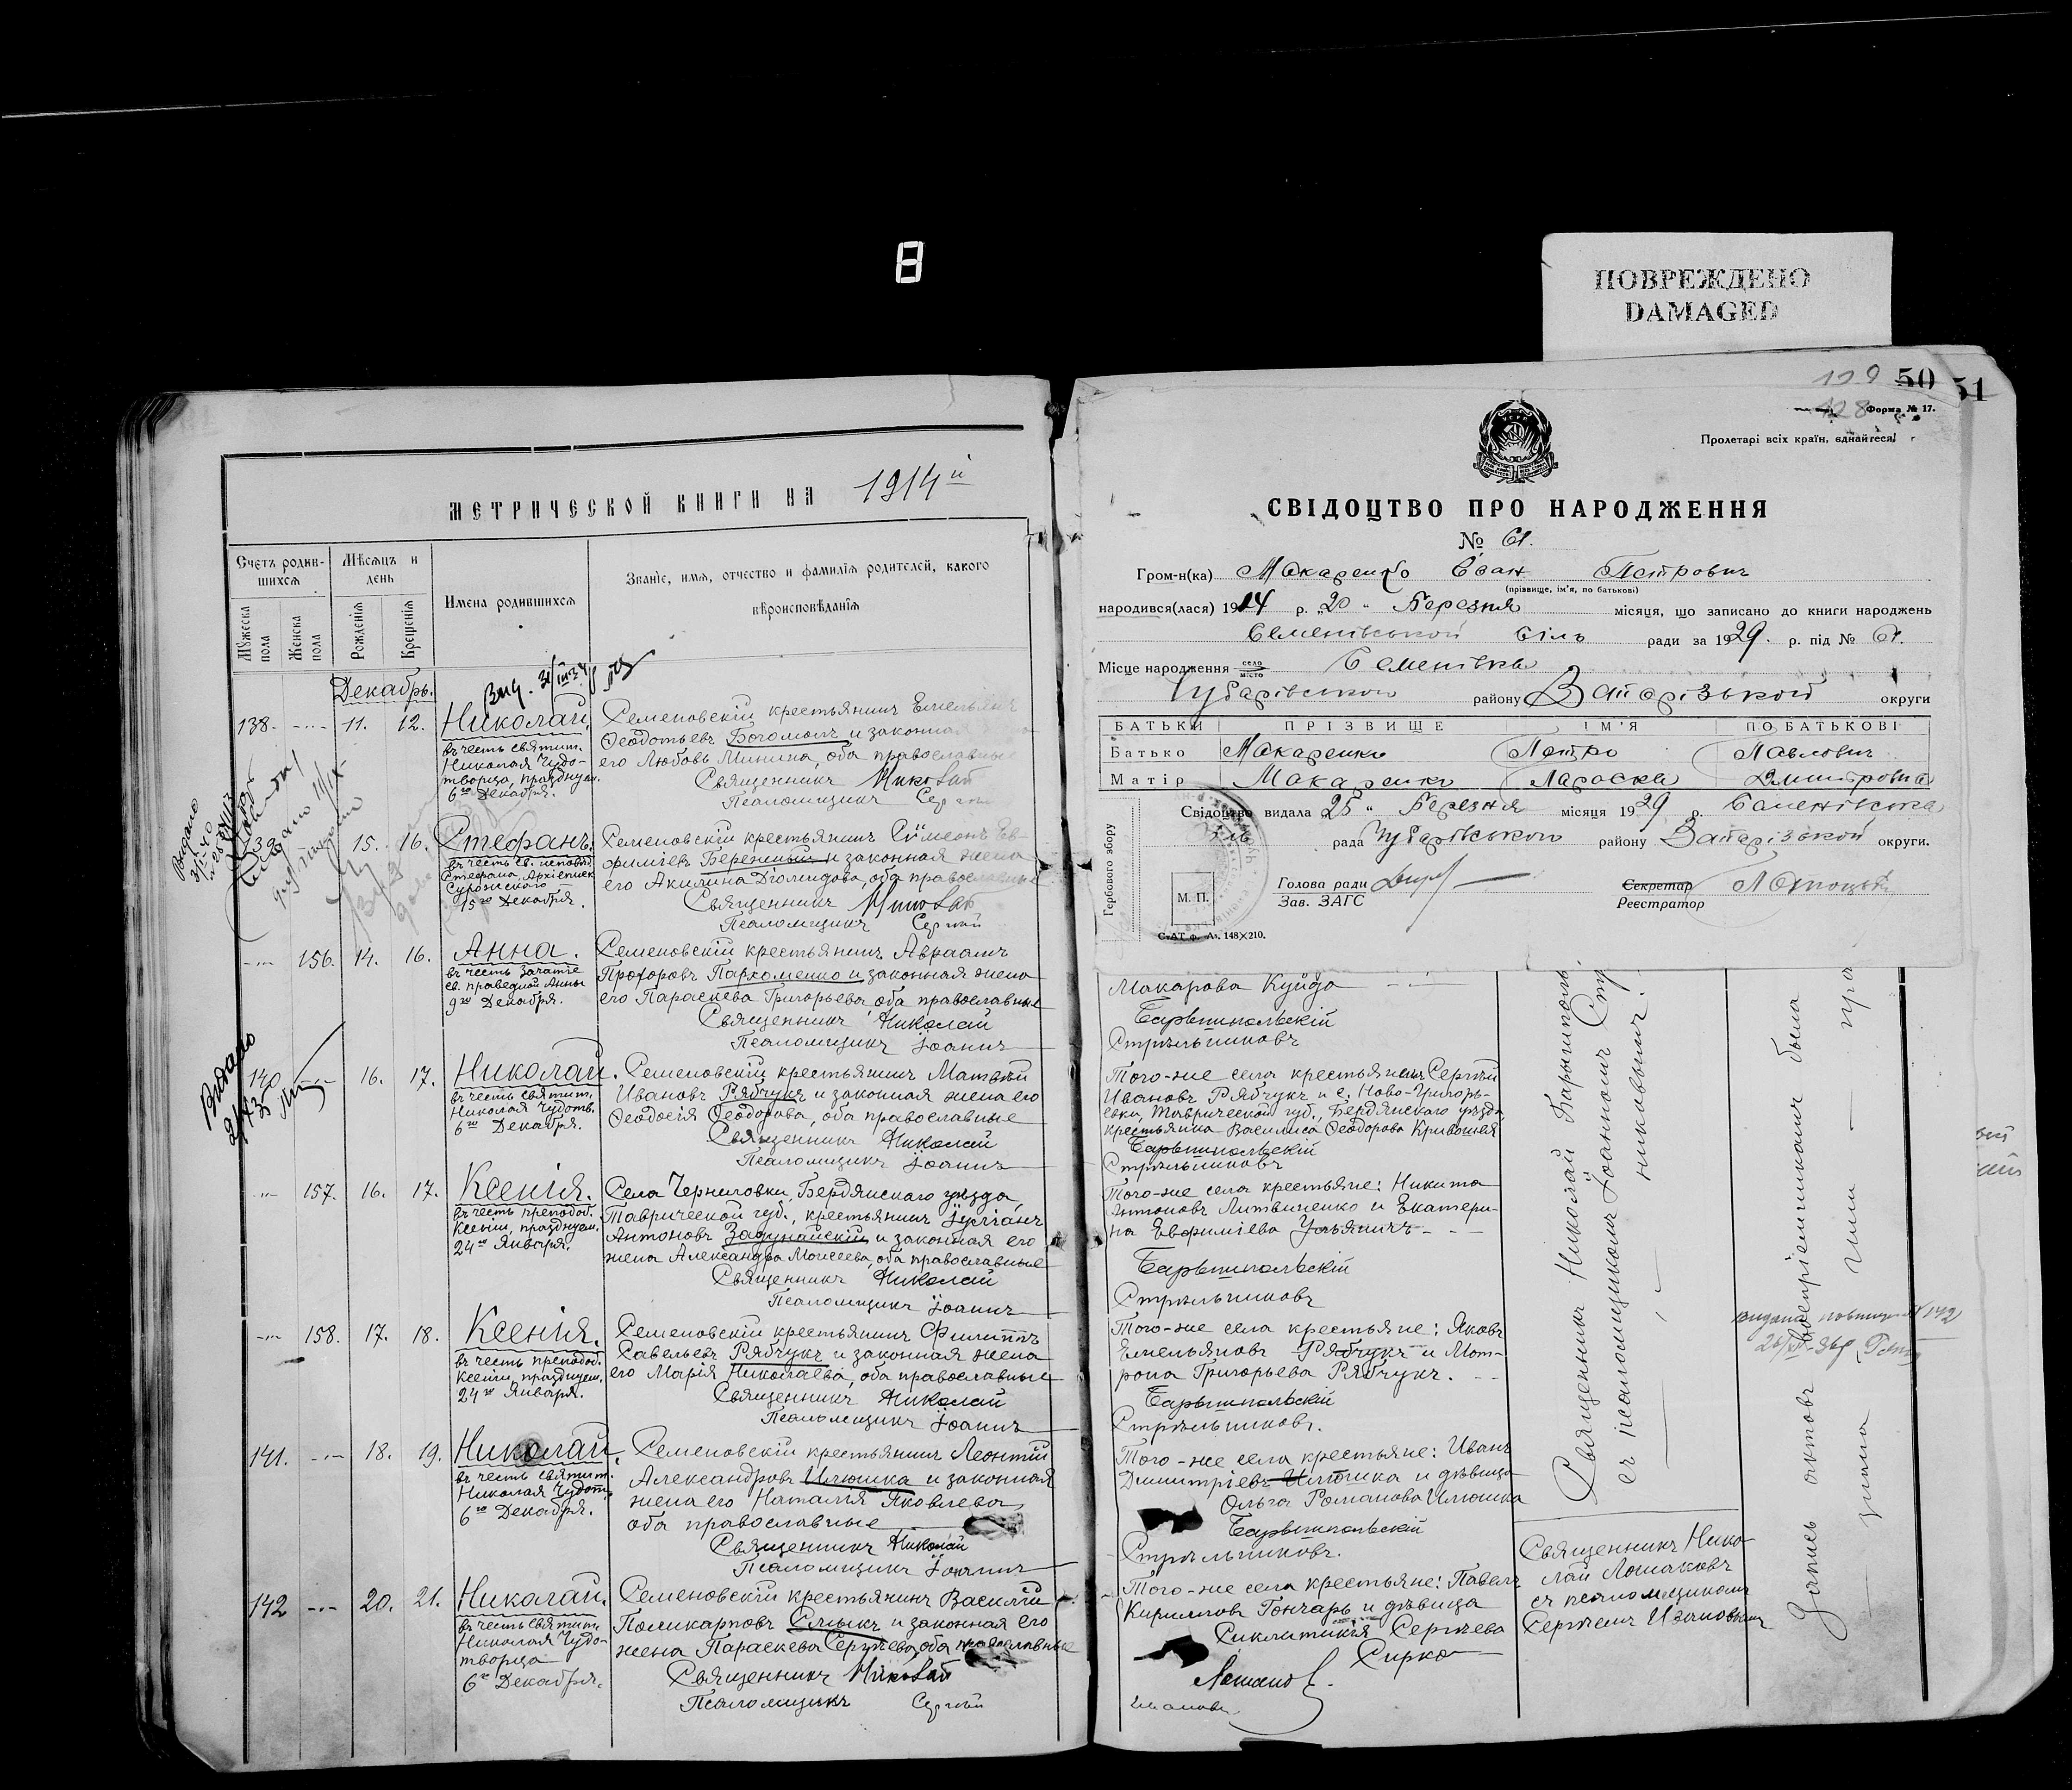 ПОВРЕЖДЕНО
DAMAGED
МЕТРИЧЕСКОЙ КНИГИ НА 1914й
Счетъ родив-
шихся
Мѣсяцъ и
день
Имена родившихся
Званіе, имя, отчество и фамилія родителей, какого
вѣроисповѣданія
Мужеска пола
Женска пола
Рожденія
Крещенія
Декабрь.
138. 11. 12. Николай,
въ честь святит.
Николая Чудо-
творца, празднуем.
6го Декабря.
Семеновскій крестьянинъ Емельянъ
Ѳеодотьевъ Богомолъ и законная
его Любовь Минина, оба православные
Священникъ Николай
Псаломщикъ Сергій
15. 16. Стефанъ.
въ честь св. исповѣд.
Стефана, Архіеписк
Сурожскаго
15го Декабря.
Семеновскій крестьянинъ Сѵмеонъ Ев-
фиміевъ Бережный и законная жена
его Акилина Діомидова, оба православные
Священникъ Николай
Псаломщикъ Сергій
156. 14. 16. Анна.
въ честь зачатіе
св. праведной Анны
9го Декабря.
Семеновскій крестьянинъ Авраамъ
Прохоровъ Пархоменко и законная жена
его Параскева Григорьева, оба православные
Священникъ Николай
Псаломщикъ Іоаннъ
Видано
140 16. 17. Николай.
въ честь святит.
Николая Чудотв.
6го Декабря.
Семеновскій крестьянинъ Матвѣй
Ивановъ Рябчукъ и законная жена его
Ѳеодосія Ѳеодорова, оба православные
Священникъ Николай
Псаломщикъ Іоаннъ
157. 16. 17. Ксенія.
въ честь преподоб.
Ксеніи, празднуем.
24го Января.
Села Черниговки, Бердянскаго уѣзда,
Таврической губ., крестьянинъ Іуліанъ
Антоновъ Задунайскій и законная его
жена Александра Моисеева, оба православные
Священникъ Николай
Псаломщикъ Іоаннъ
158. 17. 18. Ксенія.
въ честь преподоб.
Ксеніи, празднуем.
24го Января.
Семеновскій крестьянинъ Филиппъ
Савельевъ Рябчукъ и законная жена
его Марія Николаева, оба православные
Священникъ Николай
Псаломщикъ Іоаннъ
141. 18. 19. Николай.
въ честь святит.
Николая Чудот.
6го Декабря.
Семеновскій крестьянинъ Леонтій
Александровъ Илюшка и законная
жена его Наталія Яковлева,
оба православные
Священникъ Николай
Псаломщикъ Іоаннъ
142 20. 21. Николай.
въ честь святит.
Николая Чудо-
творца
6го Декабря.
Семеновскій крестьянинъ Василій
Поликарповъ Смыкъ и законная его
жена Параскева Сергѣева, оба православные
Священникъ Николай
Псаломщикъ Сергій
129 50 51
128 Форма № 17.
Пролетарі всіх країн, єднайтеся!
СВІДОЦТВО ПРО НАРОДЖЕННЯ
№ 61.
Гром-н(ка) Макаренко Іван Петрович
(прізвище, ім'я, по батькові)
народився(лася) 1914 р. „20“ Березня місяця, що записано до книги народжень
Семенівської Сіль ради за 1929. р. під № 61.
Місце народження село місто Семенівка
Чубарівського району Запорізької округи
БАТЬКИ ПРІЗВИЩЕ ІМ'Я ПО БАТЬКОВІ
Батько Макаренко Петро Павлович
Матір Макаренко Параска Дмитровна
Свідоцтво видала „25“ Березня місяця 1929 р. Семенівська
рада Чубарівського району Запорізької округи.
Гербового збору
М. П.
Голова ради
Зав. ЗАГС
Секретар
Реєстратор
СтАТ ф. А₅. 148×210.
Макарова Куйда
Барышпольскій
Стрѣльниковъ
Того-же села крестьянинъ Сергій
Ивановъ Рябчукъ и с. Ново-Григорь-
евки, Таврической губ., Бердянскаго уѣзда
крестьянка Василиса Ѳеодорова Кривошея
Барышпольскій
Стрѣльниковъ
Того-же села крестьяне: Никита
Антоновъ Литвиненко и Екатери-
на Евфиміева Ульяничъ
Барышпольскій
Стрѣльниковъ
Того-же села крестьяне: Яковъ
Емельяновъ Рябчукъ и Мот-
рона Григорьева Рябчукъ.
Барышпольскій
Стрѣльниковъ.
Того-же села крестьяне: Иванъ
Димитріевъ Илюшка и дѣвица
Ольга Романова Илюшка
Барышпольскій
Стрѣльниковъ.
Того-же села крестьяне: Павелъ
Кирилловъ Гончаръ и дѣвица
Сергѣева
Сирко
Священникъ Николай Барышполь
съ псаломщикомъ Іоанномъ Стр
никовымъ.
Священникъ Нико-
лай Лошаковъ
съ псаломщикомъ
Сергѣемъ Ивановымъ
Запись актовъ воспріемниками была